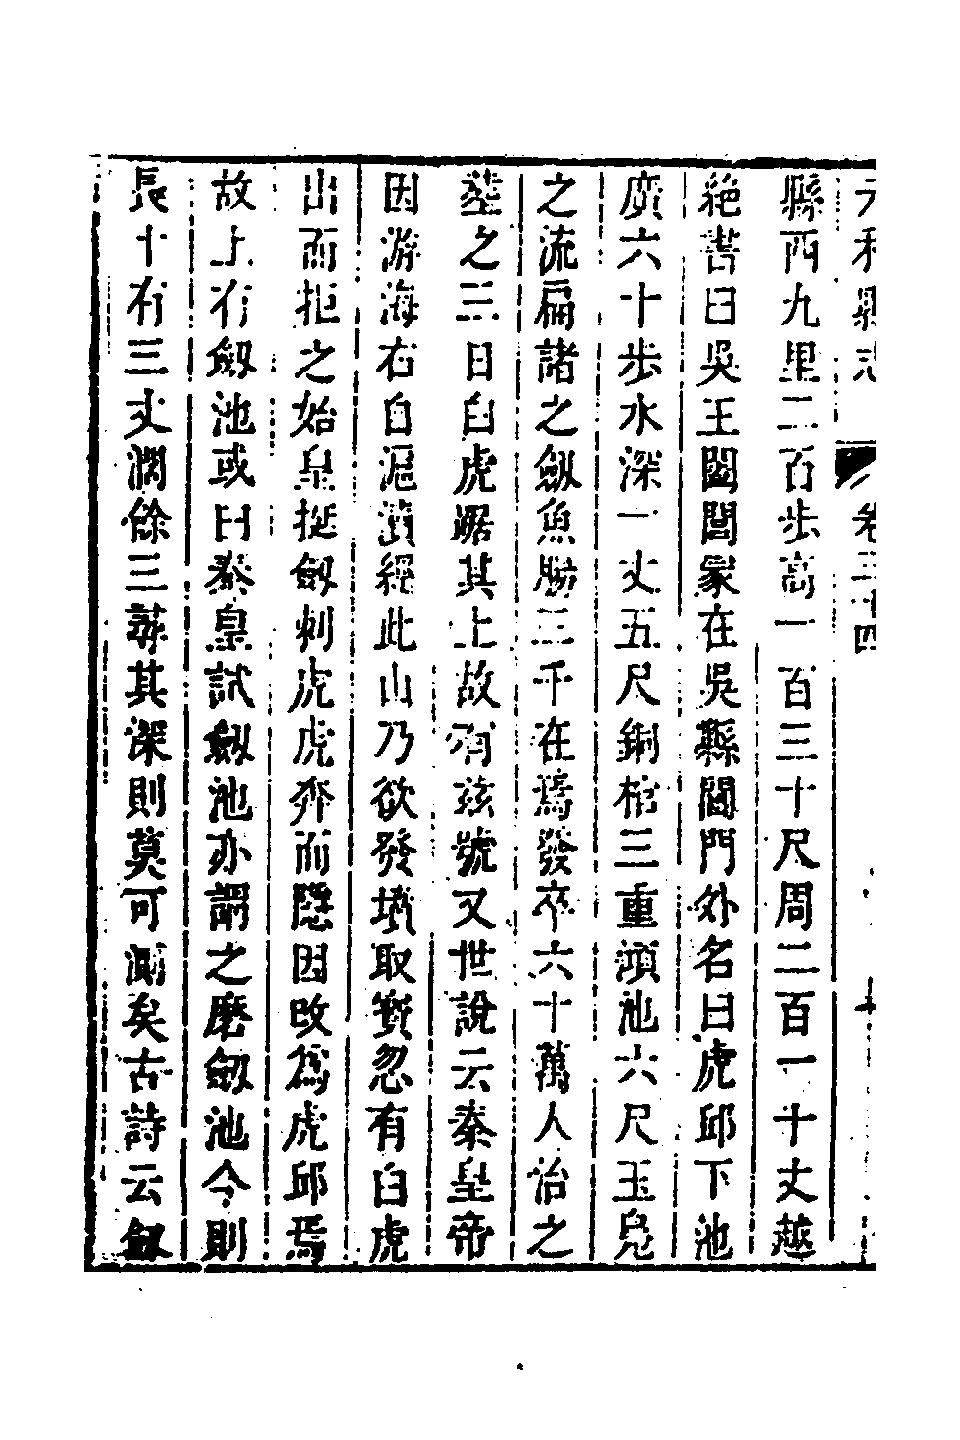 元和縣志 卷三十四
縣西九里二百步高一百三十尺周二百一十丈越
絶書曰吳王闔閭冢在吳縣閶門外名曰虎邱下池
廣六十步水深一丈五尺銅棺三重澒池六尺玉鳧
之流扁諸之劒魚腸三千在焉發卒六十萬人治之
葬之三日白虎踞其上故有玆號又世說云秦皇帝
因游海右自滬瀆經此山乃欲發墳取寳忽有白虎
出而拒之始皇挺劒刺虎虎奔而隱因改爲虎邱焉
故上有劒池或曰秦皇試劒池亦謂之磨劒池今則
長十有三丈濶餘三尋其深則莫可測矣古詩云劒